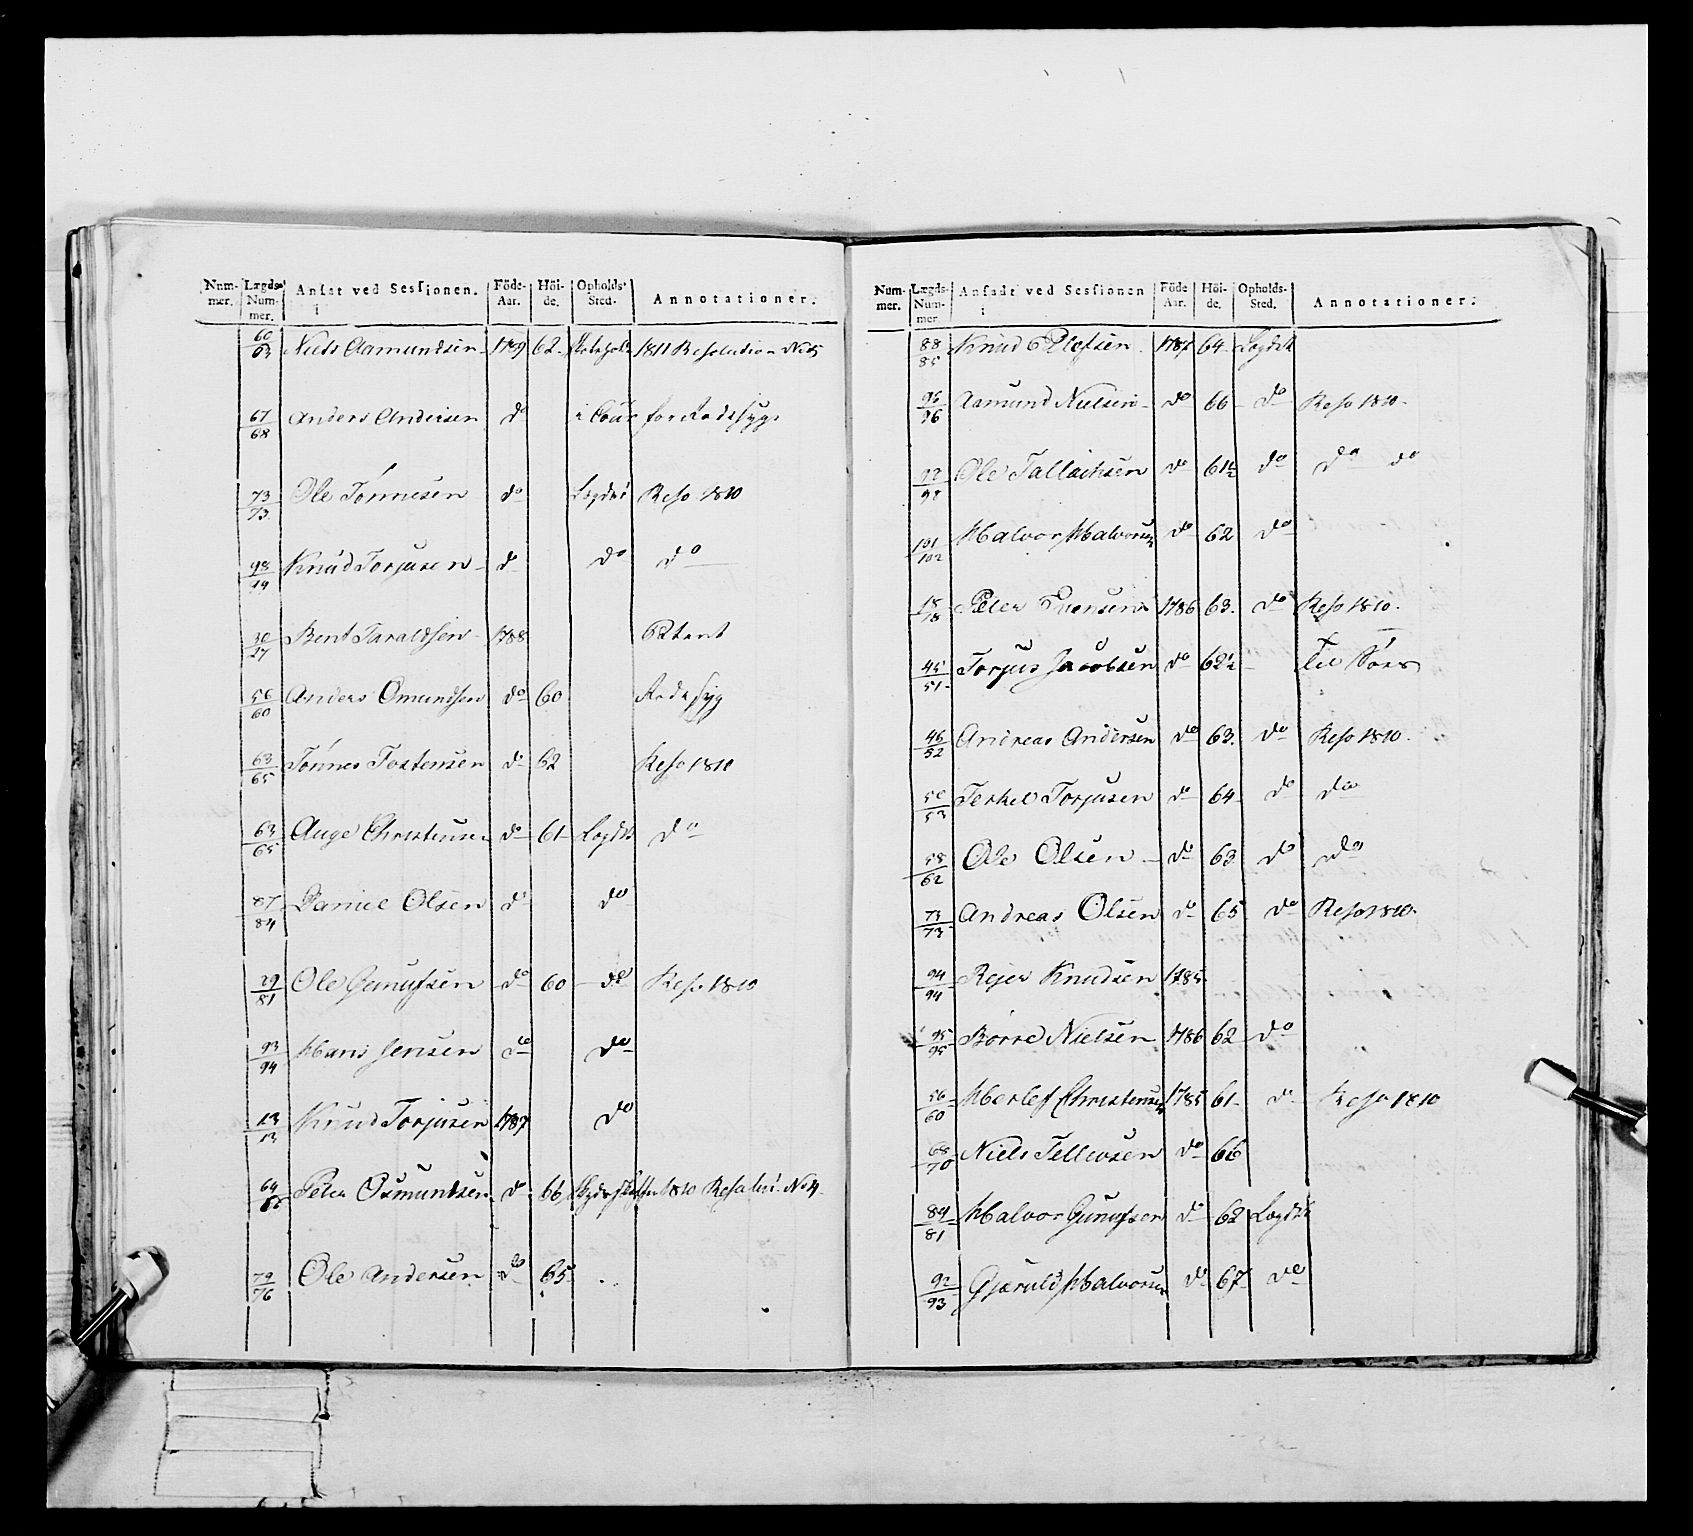 Num-mer. Lægds-Num-mer. Ansat ved Sessionen i Föde-Aar. Höi-de. Opholds-Sted. Annotationer.
60/63 Niels Aamundsen 1789 62 1811 Resolution No 5
67/68 Anders Andersen do i Cour for Radesyge
73/73 Ole Tönnesen do Lægdet Reso 1810
98/99 Knud Torjusen do do do
30/27 Bent Taraldsen 1788 Patent
56/60 Anders Omundsen do 60 Radesyg
63/65 Tönnes Tostensen do 62 Reso 1810
63/65 Auge Christensen do 61 Lægdet do
87/84 Daniel Olsen do do
29/81 Ole Gunufsen do 60 do Reso 1810
93/94 Hans Jensen do do
13/13 Knud Torjusen 1787 do
64/66 Peter Osmundsen do 66 1810 Resolut. No 4
79/76 Ole Andersen do 65
Num-mer. Lægds-Num-mer. Ansadt ved Sessionen i Föde Aar. Höi-de. Opholds-Sted. Annotationer.
88/85 Knud Olefsen 1787 64 Lægdet
96/96 Aamund Nielsen do 66 do Reso 1810
92/98 Ole Tallachsen do 61½ do do do
101/102 Halvor Halvorsen do 62 do
18/18 Peter Svensen 1786 63 do Reso 1810
45/51 Torjus Jacobsen do 62½ Til Söes
46/52 Andreas Andersen do 63 do Reso 1810
50/53 Terkel Torjusen do 64 do do
58/62 Ole Olsen do 63 do do
73/73 Andreas Olsen do 65 do Reso 1810
94/94 Rejer Knudsen 1785
95/95 Börre Nielsen 1786 62 do
56/60 Herlef Christensen 1785 61 do Reso 1810
68/70 Niels Tellevsen do 66
84/81 Halvor Gunufsen do 62 Lægdet
92/93 Gjeruld Halvorsen do 67 do